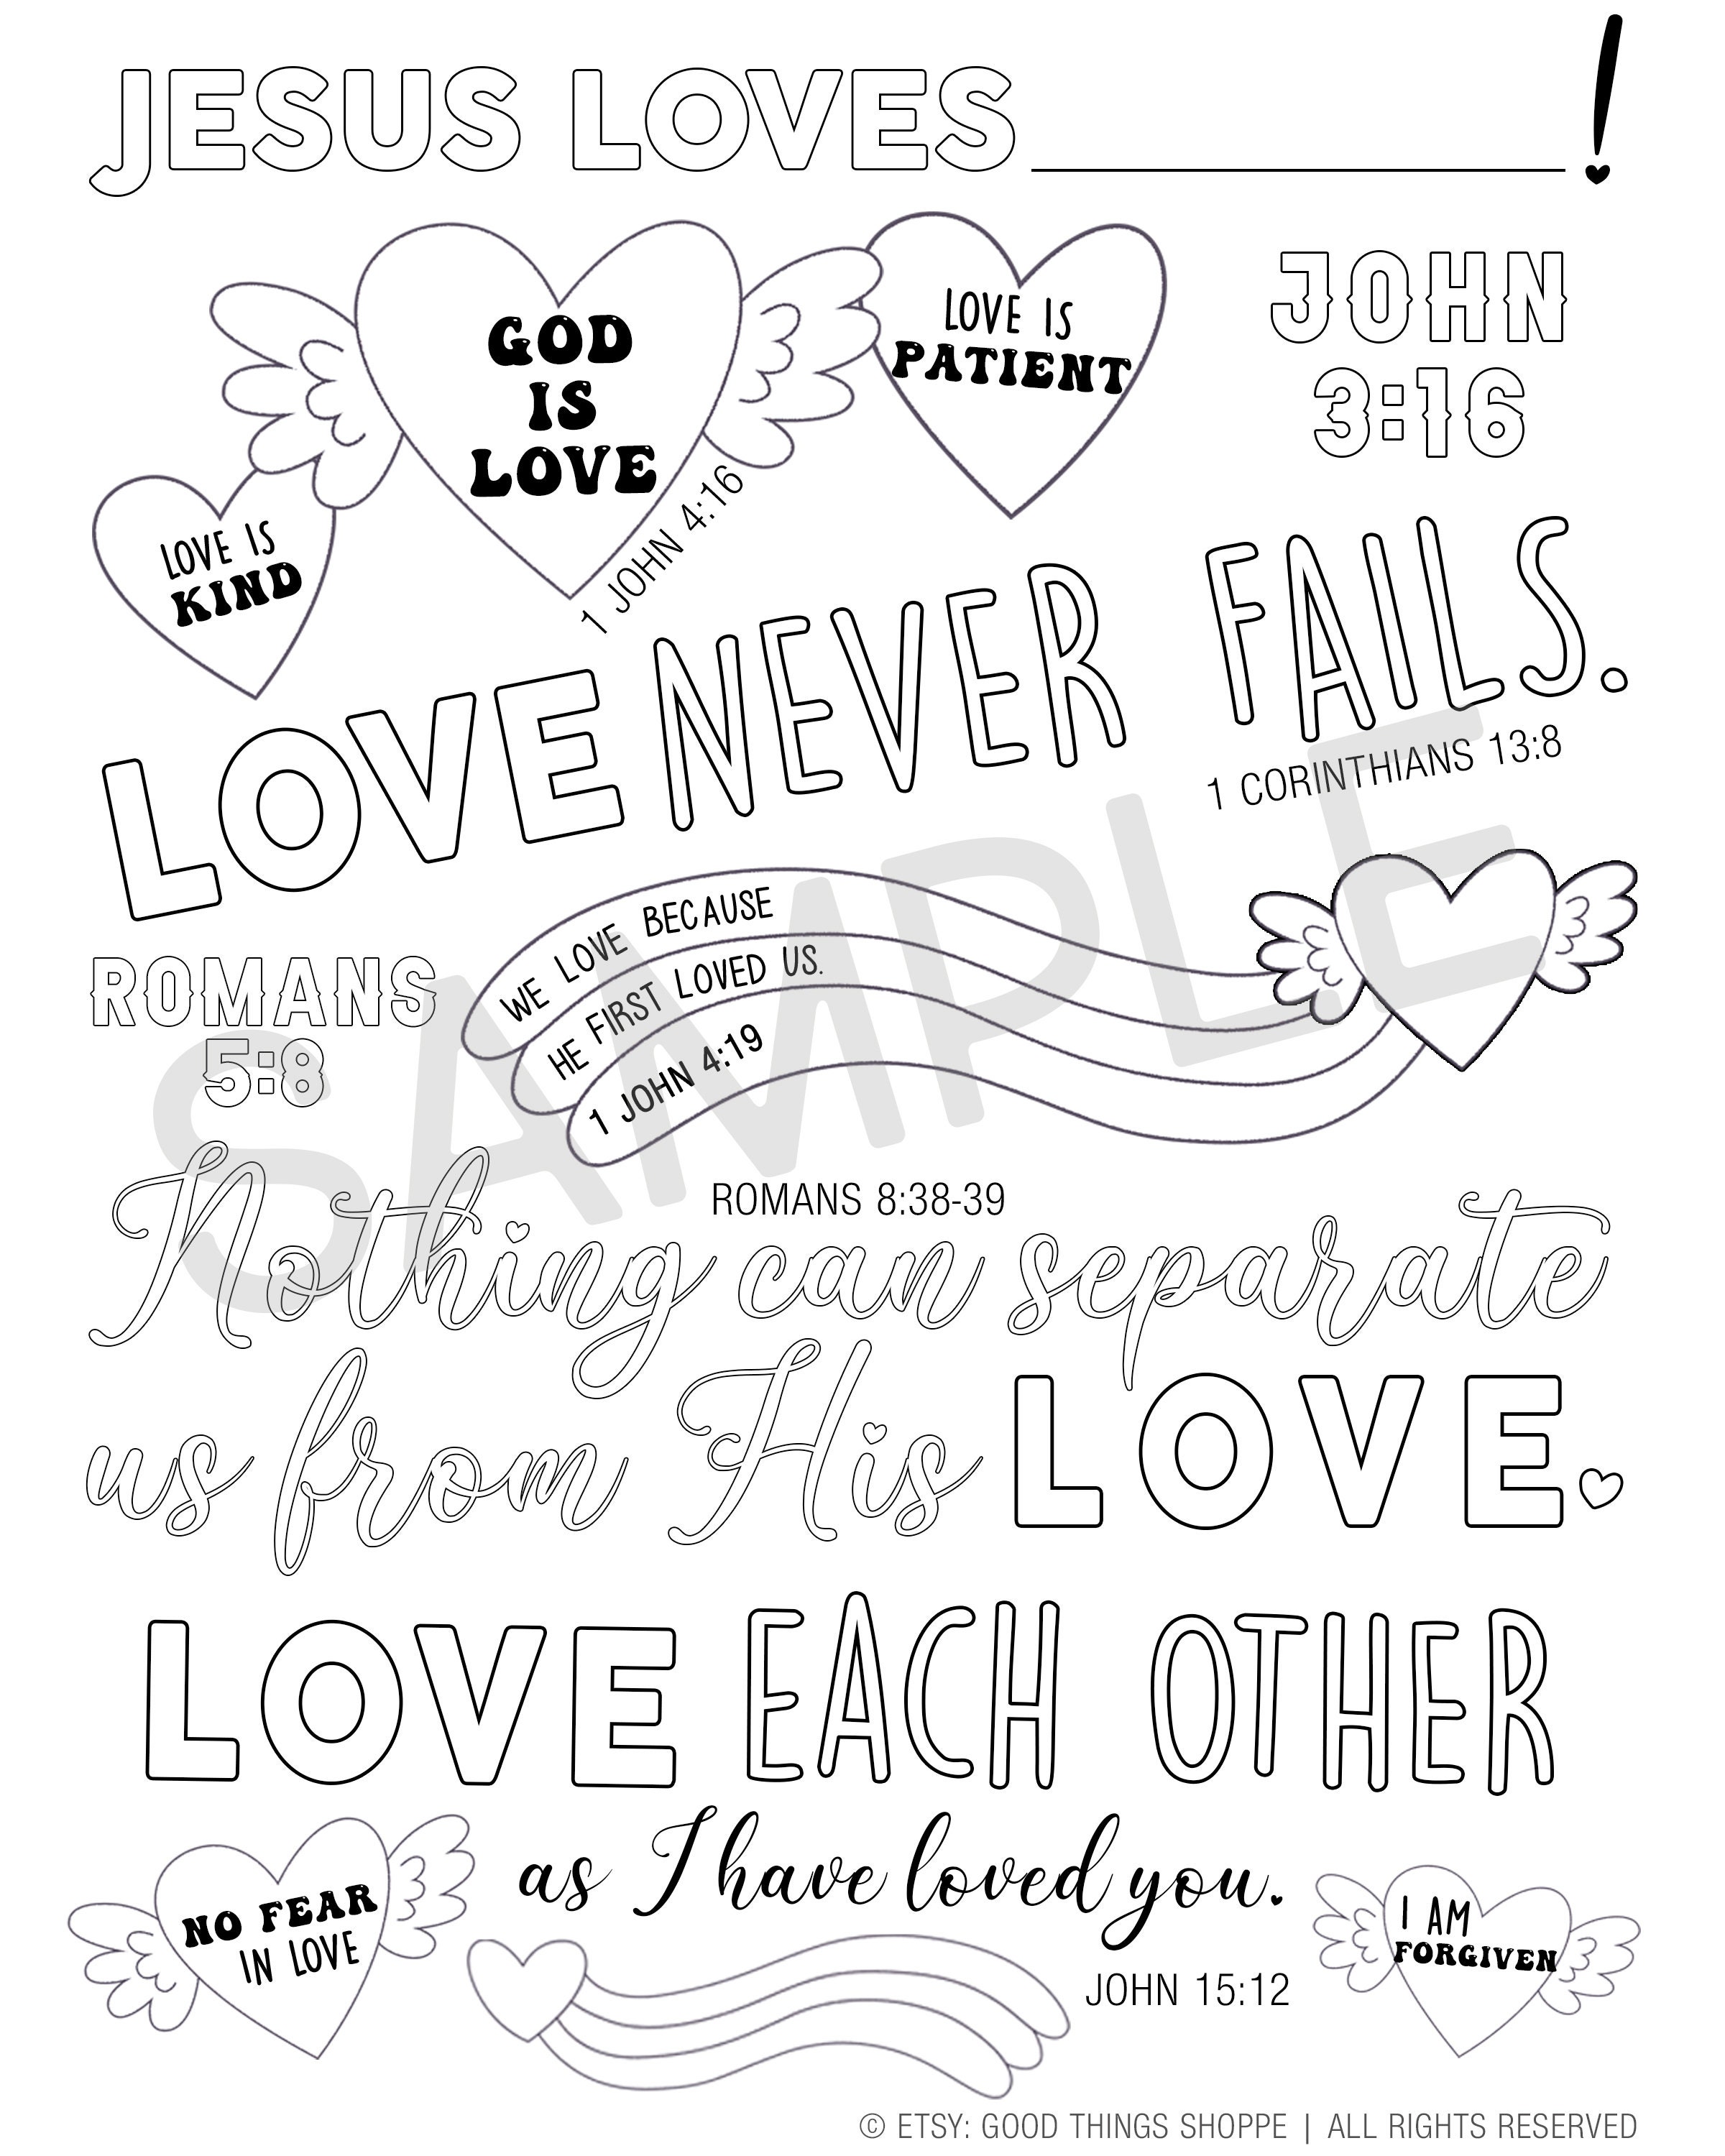 JESUS LOVES ______________!
GOD
IS
LOVE
1 JOHN 4:16
LOVE IS
PATIENT
JOHN
3:16
LOVE IS
KIND
LOVE NEVER FAILS.
1 CORINTHIANS 13:8
WE LOVE BECAUSE
HE FIRST LOVED US.
1 JOHN 4:19
ROMANS
5:8
SAMPLE
ROMANS 8:38-39
Nothing can separate
us from His LOVE.
LOVE EACH OTHER
as I have loved you.
JOHN 15:12
NO FEAR
IN LOVE
I AM
FORGIVEN
© ETSY: GOOD THINGS SHOPPE | ALL RIGHTS RESERVED